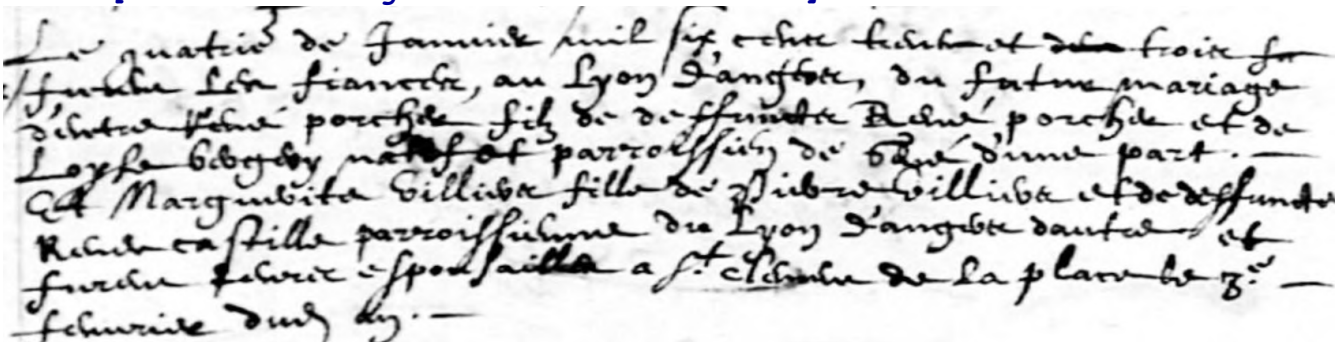 Le quatrie de Janvier mil six cents trente et trois fu
furent les fiances, au Lyon d'angers, du futur mariage
d'entre René porcher filz de deffuncts René porcher et de
Loyse natif et parroissien de d'une part. —
Et Marguerite Villiers fille de Pierre Villiers et de deffuncte
Renee castille parroissienne du Lyon d'angers dautre et
furent leurs espousailles a st clemens de la place le 3e —
febvrier dud an. —